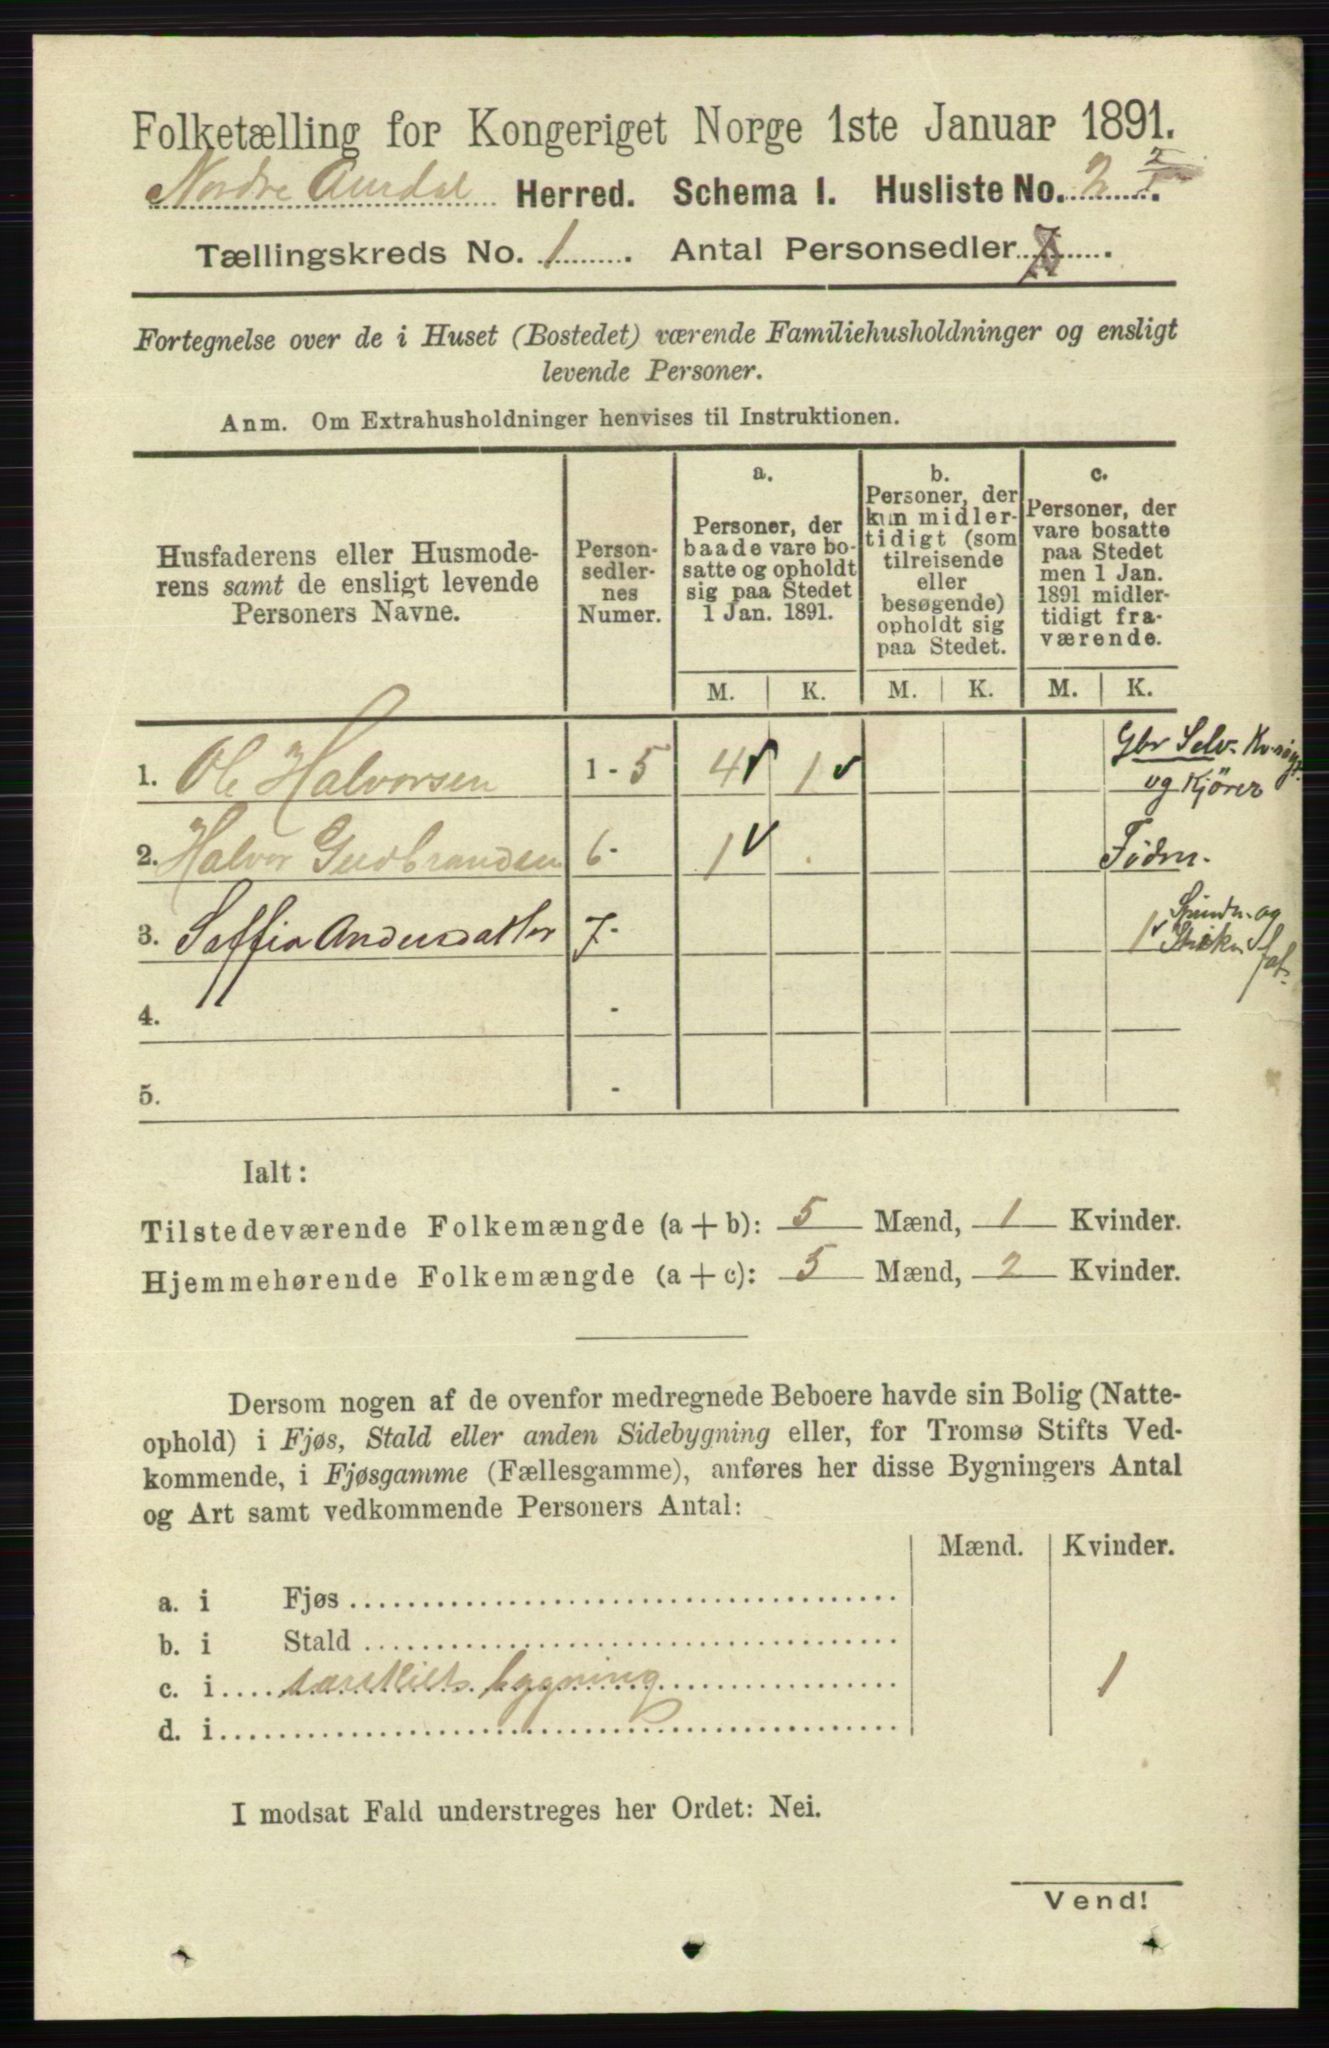 Folketælling for Kongeriget Norge 1ste Januar 1891.
Nordre Aurdal Herred. Schema I. Husliste No. 2
Tællingskreds No. 1. Antal Personsedler 7.
Fortegnelse over de i Huset (Bostedet) værende Familiehusholdninger og ensligt
levende Personer.
Anm. Om Extrahusholdninger henvises til Instruktionen.
Husfaderens eller Husmode-
rens samt de ensligt levende
Personers Navne.
Person-
sedler-
nes
Numer.
a.
Personer, der
baade vare bo-
satte og opholdt
sig paa Stedet
1 Jan. 1891.
b.
Personer, der
kun midler-
tidigt (som
tilreisende
eller
besøgende)
opholdt sig
paa Stedet.
c.
Personer, der
vare bosatte
paa Stedet
men 1 Jan.
1891 midler-
tidigt fra-
værende.
M. K. M. K. M. K.
1. Ole Halvorsen 1 - 5 4 1 Gbr Selv.
og Kjörer
2. Halvor Gudbrandsen 6 - 1 . Födr.
3. Saffia Andersdatter 7 - 1 og
4. -
5. -
Ialt:
Tilstedeværende Folkemængde (a + b): 5 Mænd, 1 Kvinder.
Hjemmehørende Folkemængde (a + c): 5 Mænd, 2 Kvinder.
Dersom nogen af de ovenfor medregnede Beboere havde sin Bolig (Natte-
ophold) i Fjøs, Stald eller anden Sidebygning eller, for Tromsø Stifts Ved-
kommende, i Fjøsgamme (Fællesgamme), anføres her disse Bygningers Antal
og Art samt vedkommende Personers Antal:
Mænd. Kvinder.
a. i Fjøs
b. i Stald
c. i særskilt bygning 1
d. i
I modsat Fald understreges her Ordet: Nei.
Vend!